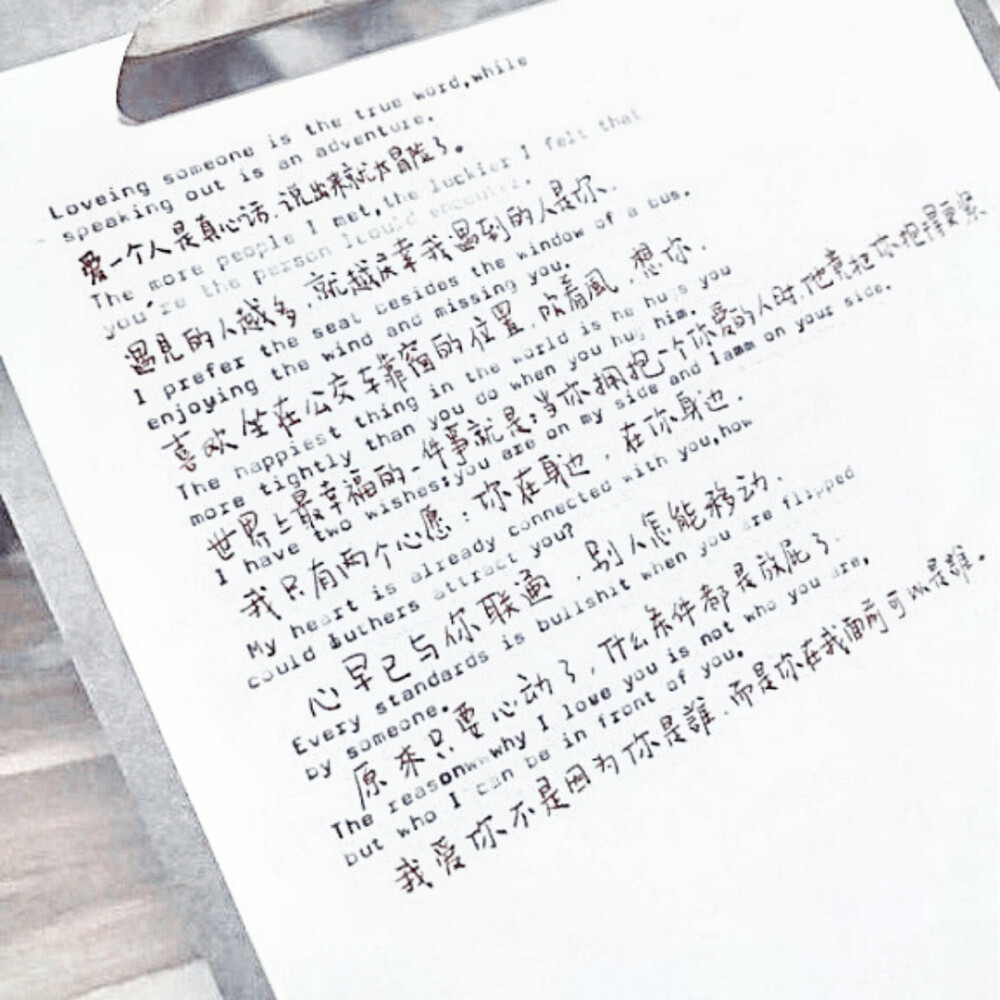 Loveing someone is the true word,while
speaking out is an adventure.
爱一个人是真心话.说出来就大冒险了。
The more people I met,the luckier I felt that
you're the person I could encouter.
遇見的人越多,就越庆幸我遇到的人是你.
I prefer the seat besides the window of a bus.
enjoying the wind and missing you.
喜欢坐在公交车靠窗的位置,吹着風,想你.
The happiest thing in the world is he hugs you
more tightly than you do when you hug him.
世界上最幸福的一件事就是:当你拥抱一个你爱的人时,他竟把你抱得更紧.
I have two wishes:you are on my side and Iamm on your side.
我只有两个心愿:你在身边,在你身边.
My heart is already connected with you,how
could &uthers attract you?
心早已与你联通,别人怎能移动.
Every standards is bullshit when you are flipped
by someone.
原来只要心动了,什么条件都是放屁了.
The reasonwwwhy I love you is not who you are,
but who I can be in front of you.
我爱你不是因为你是誰.而是你在我面前可以是誰.